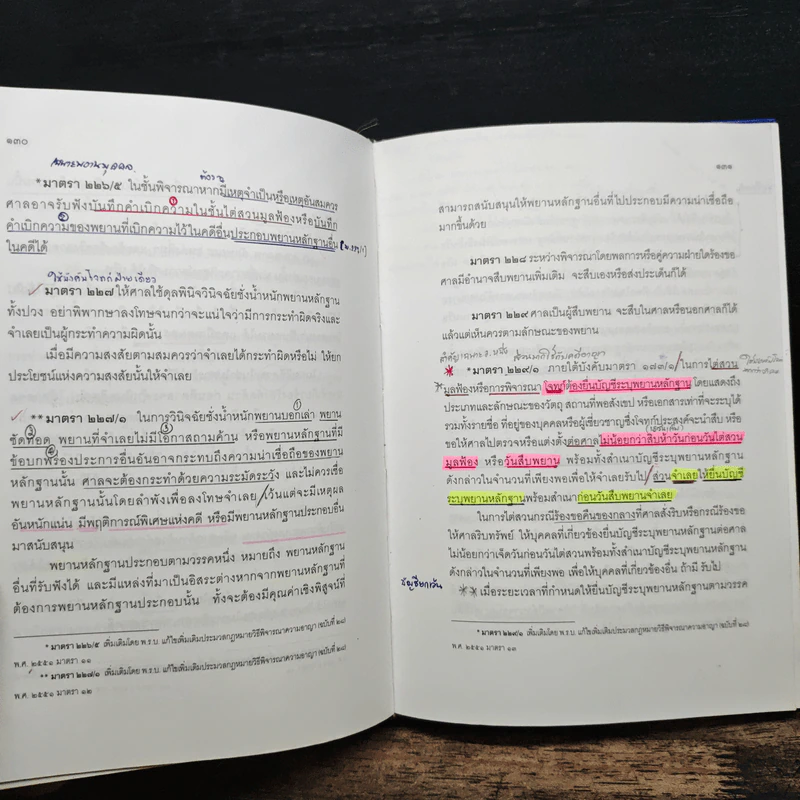 ๑๓๐
*มาตรา ๒๒๖/๕ ในชั้นพิจารณาหากมีเหตุจำเป็นหรือเหตุอันสมควร
ศาลอาจรับฟังบันทึกคำเบิกความในชั้นไต่สวนมูลฟ้องหรือบันทึก
คำเบิกความของพยานที่เบิกความไว้ในคดีอื่นประกอบพยานหลักฐานอื่น
ในคดีได้
มาตรา ๒๒๗ ให้ศาลใช้ดุลพินิจวินิจฉัยชั่งน้ำหนักพยานหลักฐาน
ทั้งปวง อย่าพิพากษาลงโทษจนกว่าจะแน่ใจว่ามีการกระทำผิดจริงและ
จำเลยเป็นผู้กระทำความผิดนั้น
เมื่อมีความสงสัยตามสมควรว่าจำเลยได้กระทำผิดหรือไม่ ให้ยก
ประโยชน์แห่งความสงสัยนั้นให้จำเลย
**มาตรา ๒๒๗/๑ ในการวินิจฉัยชั่งน้ำหนักพยานบอกเล่า พยาน
ซัดทอด พยานที่จำเลยไม่มีโอกาสถามค้าน หรือพยานหลักฐานที่มี
ข้อบกพร่องประการอื่นอันอาจกระทบถึงความน่าเชื่อถือของพยาน
หลักฐานนั้น ศาลจะต้องกระทำด้วยความระมัดระวัง และไม่ควรเชื่อ
พยานหลักฐานนั้นโดยลำพังเพื่อลงโทษจำเลย เว้นแต่จะมีเหตุผล
อันหนักแน่น มีพฤติการณ์พิเศษแห่งคดี หรือมีพยานหลักฐานประกอบอื่น
มาสนับสนุน
พยานหลักฐานประกอบตามวรรคหนึ่ง หมายถึง พยานหลักฐาน
อื่นที่รับฟังได้ และมีแหล่งที่มาเป็นอิสระต่างหากจากพยานหลักฐานที่
ต้องการพยานหลักฐานประกอบนั้น ทั้งจะต้องมีคุณค่าเชิงพิสูจน์ที่
* มาตรา ๒๒๖/๕ เพิ่มเติมโดย พ.ร.บ. แก้ไขเพิ่มเติมประมวลกฎหมายวิธีพิจารณาความอาญา (ฉบับที่ ๒๘)
พ.ศ. ๒๕๕๑ มาตรา ๑๑
** มาตรา ๒๒๗/๑ เพิ่มเติมโดย พ.ร.บ. แก้ไขเพิ่มเติมประมวลกฎหมายวิธีพิจารณาความอาญา (ฉบับที่ ๒๘)
พ.ศ. ๒๕๕๑ มาตรา ๑๒
๑๓๑
สามารถสนับสนุนให้พยานหลักฐานอื่นที่ไปประกอบมีความน่าเชื่อถือ
มากขึ้นด้วย
มาตรา ๒๒๘ ระหว่างพิจารณาโดยพลการหรือคู่ความฝ่ายใดร้องขอ
ศาลมีอำนาจสืบพยานเพิ่มเติม จะสืบเองหรือส่งประเด็นก็ได้
มาตรา ๒๒๙ ศาลเป็นผู้สืบพยาน จะสืบในศาลหรือนอกศาลก็ได้
แล้วแต่เห็นควรตามลักษณะของพยาน
*มาตรา ๒๒๙/๑ ภายใต้บังคับมาตรา ๑๗๓/๑ ในการไต่สวน
มูลฟ้องหรือการพิจารณา โจทก์ต้องยื่นบัญชีระบุพยานหลักฐาน โดยแสดงถึง
ประเภทและลักษณะของวัตถุ สถานที่พอสังเขป หรือเอกสารเท่าที่จะระบุได้
รวมทั้งรายชื่อ ที่อยู่ของบุคคลหรือผู้เชี่ยวชาญซึ่งโจทก์ประสงค์จะนำสืบ หรือ
ขอให้ศาลไปตรวจหรือแต่งตั้งต่อศาลไม่น้อยกว่าสิบห้าวันก่อนวันไต่สวน
มูลฟ้อง หรือวันสืบพยาน พร้อมทั้งสำเนาบัญชีระบุพยานหลักฐาน
ดังกล่าวในจำนวนที่เพียงพอเพื่อให้จำเลยรับไป ส่วนจำเลยให้ยื่นบัญชี
ระบุพยานหลักฐานพร้อมสำเนาก่อนวันสืบพยานจำเลย
ในการไต่สวนกรณีร้องขอคืนของกลางที่ศาลสั่งริบหรือกรณีร้องขอ
ให้ศาลริบทรัพย์ ให้บุคคลที่เกี่ยวข้องยื่นบัญชีระบุพยานหลักฐานต่อศาล
ไม่น้อยกว่าเจ็ดวันก่อนวันไต่สวนพร้อมทั้งสำเนาบัญชีระบุพยานหลักฐาน
ดังกล่าวในจำนวนที่เพียงพอ เพื่อให้บุคคลที่เกี่ยวข้องอื่น ถ้ามี รับไป
เมื่อระยะเวลาที่กำหนดให้ยื่นบัญชีระบุพยานหลักฐานตามวรรค
* มาตรา ๒๒๙/๑ เพิ่มเติมโดย พ.ร.บ. แก้ไขเพิ่มเติมประมวลกฎหมายวิธีพิจารณาความอาญา (ฉบับที่ ๒๘)
พ.ศ. ๒๕๕๑ มาตรา ๑๓